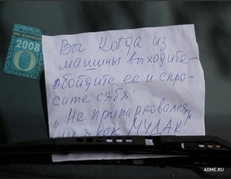 2008
Вы когда из
машины выходите -
обойдите её и спро-
сите себя:
"Не припарковался
как МУДАК"
ADME.RU